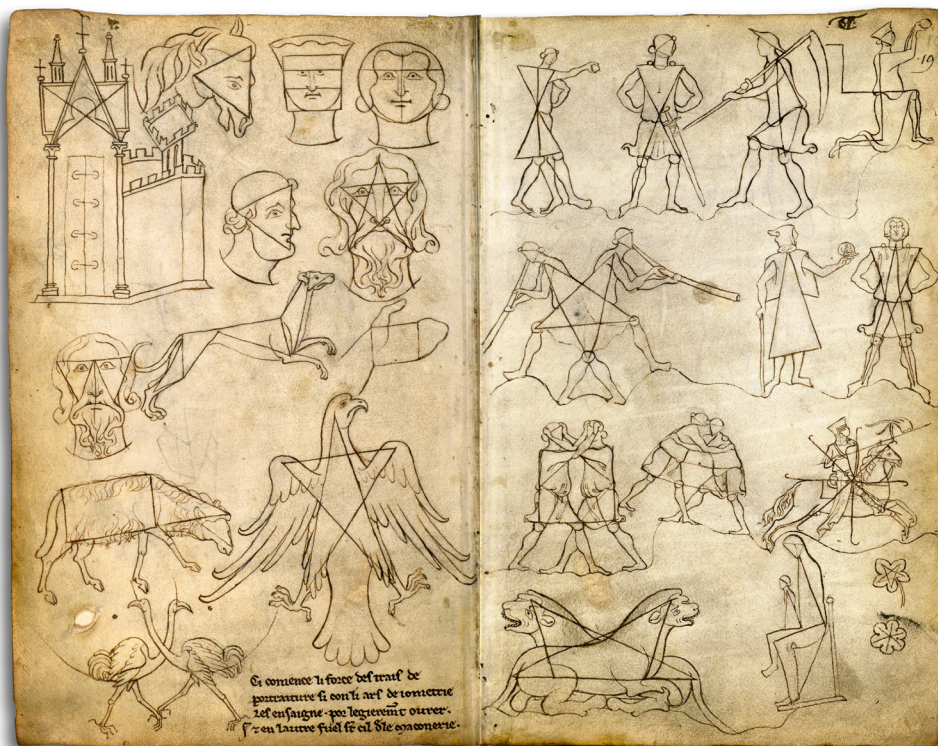 Ci comence li force des trais de
portraiture si con li ars de iometrie
les ensaigne · por legierem̄t ovrer ·
⁊ en lautre fuel st cil dle maconerie ·
19